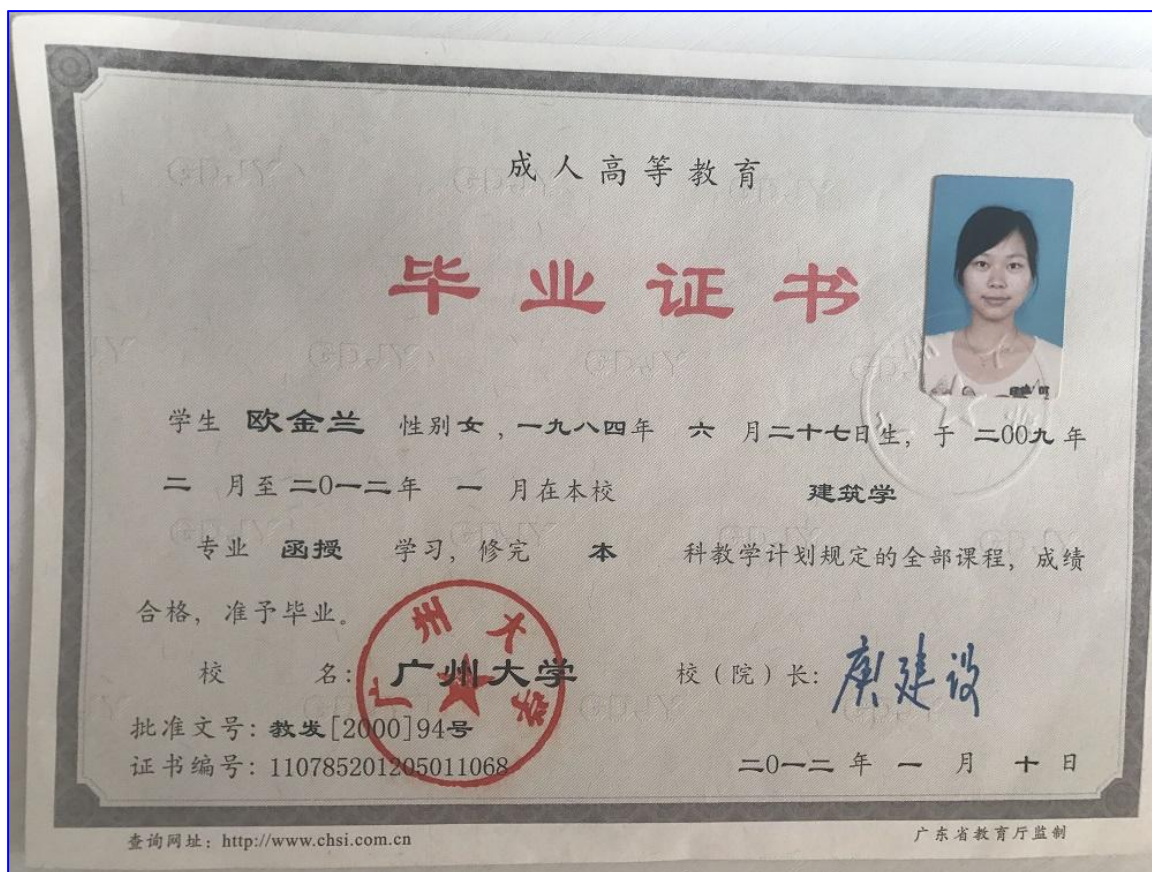 成人高等教育
毕业证书
学生 欧金兰 性别女，一九八四年 六 月二十七日生，于 二00九年
二 月至二0一二年 一 月在本校 建筑学
专业 函授 学习，修完 本 科教学计划规定的全部课程，成绩
合格，准予毕业。
校 名：广州大学 校（院）长：庾建设
批准文号：教发[2000]94号
证书编号：110785201205011068 二0一二 年 一 月 十 日
查询网址：http://www.chsi.com.cn 广东省教育厅监制
广州大学